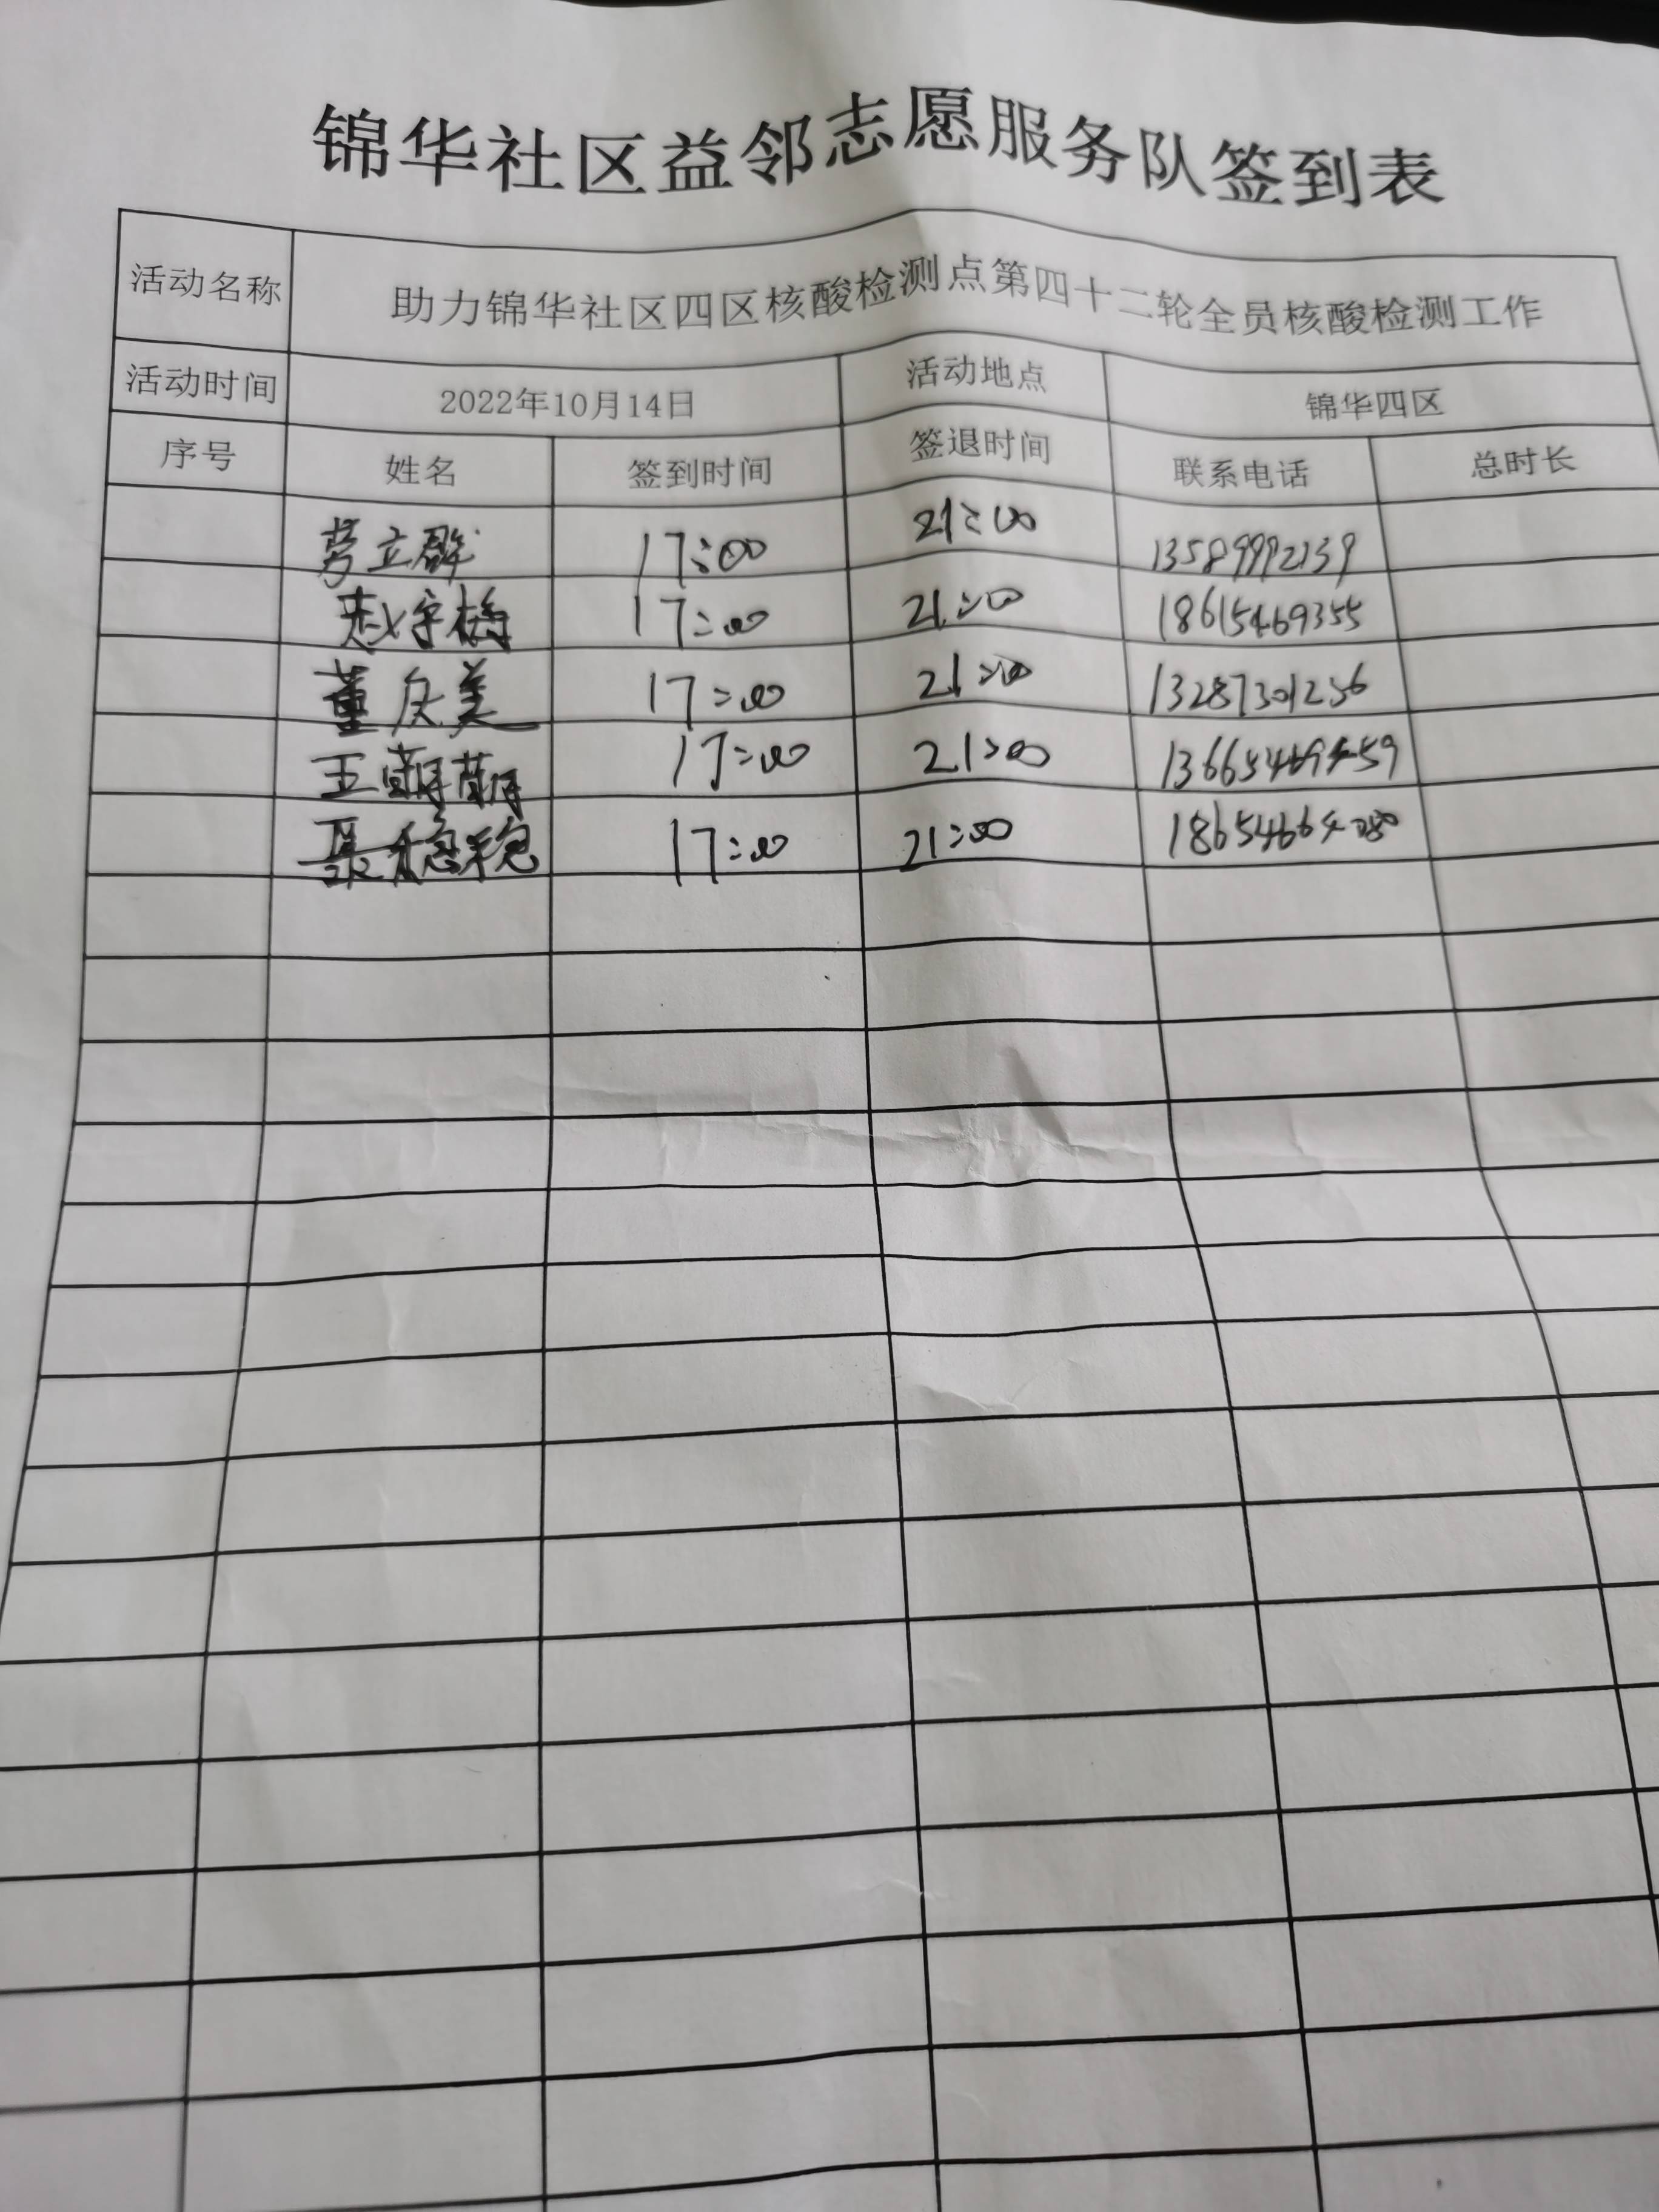 锦华社区益邻志愿服务队签到表
活动名称 助力锦华社区四区核酸检测点第四十二轮全员核酸检测工作
活动时间 2022年10月14日 活动地点 锦华四区
序号 姓名 签到时间 签退时间 联系电话 总时长
劳立群 17:00 21:00 13589992139
赵宇梅 17:00 21:00 18615469355
董庆美 17:00 21:00 13287301256
王萌萌 17:00 21:00
聂稳稳 17:00 21:00